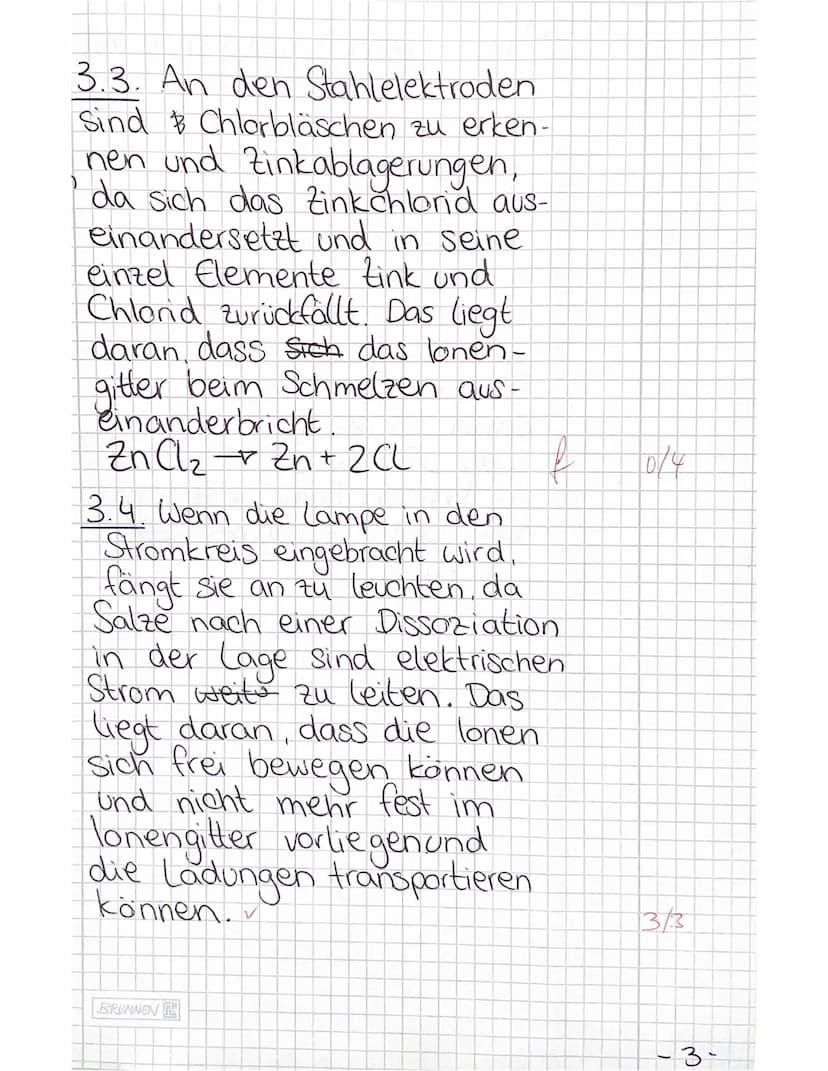 3.3. An den Stahlelektroden
sind Chlorbläschen zu erken-
nen und Zinkablagerungen,
da sich das Zinkchlorid aus-
einandersetzt und in seine
einzel Elemente Zink und
Chlorid zurückfällt. Das liegt
daran, dass sich das Ionen-
gitter beim Schmelzen aus-
einanderbricht.
ZnCl₂ → Zn + 2Cl f 0/4
3.4. Wenn die Lampe in den
Stromkreis eingebracht wird,
fängt sie an zu leuchten, da
Salze nach einer Dissoziation
in der Lage sind elektrischen
Strom zu leiten. Das
liegt daran, dass die Ionen
sich frei bewegen können
und nicht mehr fest im
Ionengitter vorliegen und
die Ladungen transportieren
können. ✓ 3/3
BRUNNEN
-3-